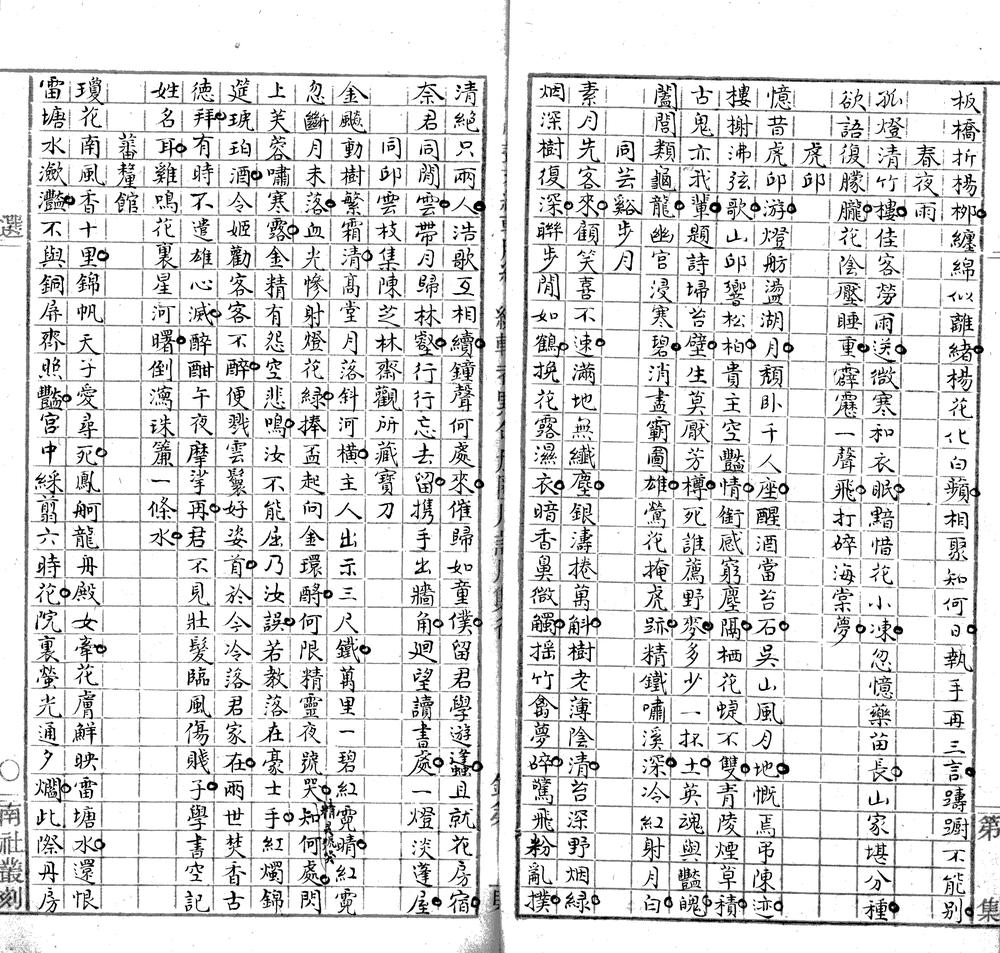 板橋折楊柳纏綿似離緒楊花化白蘋相聚知何日執手再三言躊躕不能別
春夜雨
孤燈清竹樓佳客勞雨送微寒和衣眠黯惜花小凍忽憶藥苗長山家堪分種
欲語復朦朧花陰壓睡重霹靂一聲飛打碎海棠夢
虎邱
憶昔虎邱游燈舫盪湖月頽卧千人座醒酒當苔石吳山風月地慨焉弔陳迹
樓榭沸弦歌山邱響松柏貴主空豔情銜感窮塵隔栖花蜨不雙青陵煙草積
古鬼亦我輩題詩埽苔壁生莫厭芳樽死誰薦野麥多少一抔土英魂與豔魄
闔閭類龜龍幽宮浸寒碧消盡霸圖雄鶯花掩虎跡精鐵嘯溪深冷紅射月白
同芸谿步月
素月先客來顧笑喜不速滿地無纖塵銀濤捲萬斛樹老薄陰清苔深野烟綠
烟深樹復深聯步閒如鶴挽花露濕衣暗香鼻微觸揺竹禽夢碎驚飛粉亂撲
第 集
清絕只兩人浩歌互相續鐘聲何處來催歸如童僕留君學遊蓬且就花房宿
奈君同閒雲帶月歸林壑行行忘去留携手出牆角迴望讀書處一燈淡蓬屋
同邱雲枝集陳芝林齋觀所藏寶刀
金飈動樹繁霜清高堂月落斜河橫主人出示三尺鐵萬里一碧紅霓晴紅霓
忽斷月未落血光慘射燈花綠捧盃起向金環酹何限精靈夜號哭知何處閃
上芙蓉嘯寒露金精有怨空悲鳴汝不能屈乃汝誤若教落在豪士手紅燭錦
筵琥珀酒令姬勸客客不醉便戮雲鬟好姿首於今冷落君家在兩世焚香古
德拜有時不遣雄心滅醉酣午夜摩挲再君不見壯髮臨風傷賤子學書空記
姓名耳雞鳴花裏星河曙倒瀉珠簾一條水
蕃釐館
瓊花南風香十里錦帆天子愛尋死鳳舸龍舟殿女牽花膚鮮映雷塘水還恨
雷塘水瀲灩不與銅屏齊照豔宮中綵翦六時花院裏螢光通夕爓此際丹房
選 南社叢刻